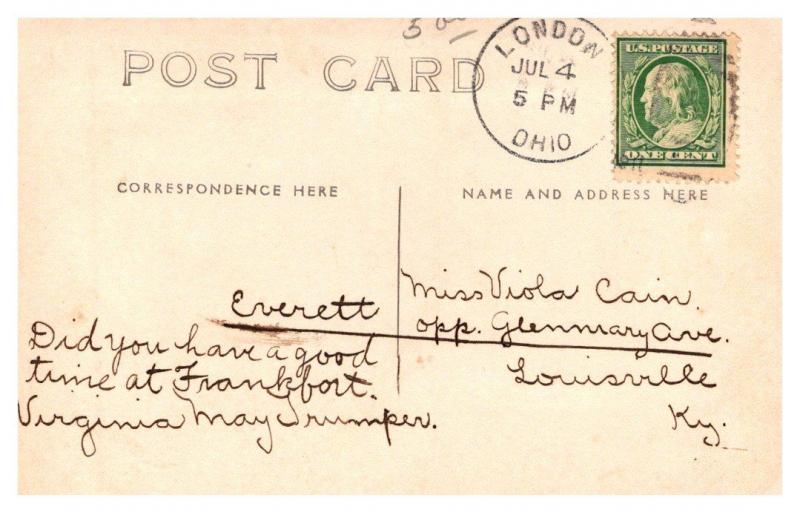 5 00
POST CARD
LONDON
JUL 4
5 PM
OHIO
U.S. POSTAGE
ONE CENT
CORRESPONDENCE HERE
NAME AND ADDRESS HERE
Everett
Did you have a good
time at Frankfort.
Virginia May Trumper.
Miss Viola Cain.
opp. Glenmary Ave.
Louisville
Ky.